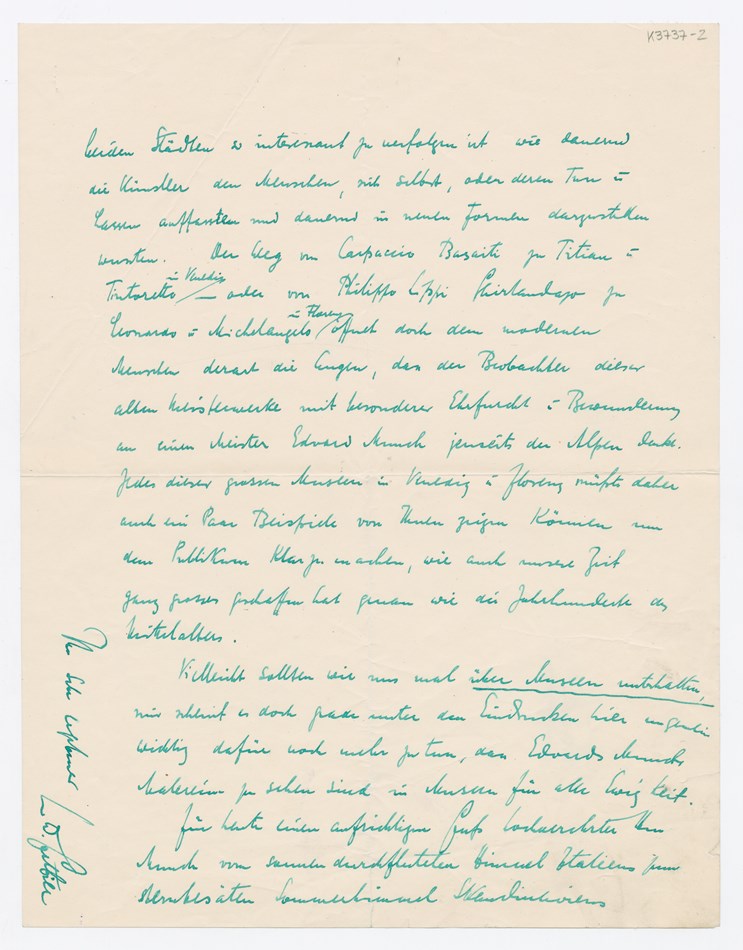 K3737-2
beiden Städten so interessant zu verfolgen ist wie dauernd
die Künstler den Menschen, sich selbst, oder deren Tun u
Lassen auffassten und dauernd in neuen Formen darzustellen
wussten. Der Weg von Carpaccio Basaiti zu Titian u
in Venedig
Tintoretto — oder von Philippo Lippi Ghirlandajo zu
in Florenz
Leonardo u Michelangelo öffnet doch dem modernen
Menschen derart die Augen, dass der Beobachter dieser
alten Meisterwerke mit besonderer Ehrfurcht u Bewunderung
an einen Meister Edvard Munch jenseits der Alpen denkt.
Jedes dieser grossen Museen in Venedig u Florenz müsste daher
auch ein Paar Beispiele von Ihnen zeigen können um
dem Publikum klar zu machen, wie auch unsere Zeit
ganz grosses geschaffen hat genau wie die Jahrhunderte des
Mittelalters.
Vielleicht sollten wir uns mal über Museen unterhalten,
mir scheint es doch grade unter den Eindrucken hier ungemein
wichtig dafür noch mehr zu tun, dass Edvard Munchs
Malereien zu sehen sind in Museen für alle Ewigkeit.
Für heute einen aufrichtigen Gruss hochverehrter Herr
Munch vom sonnendurchfluteten Himmel Italiens zum
sternbesäten Sommerhimmel Skandinaviens
Ihr sehr ergebener